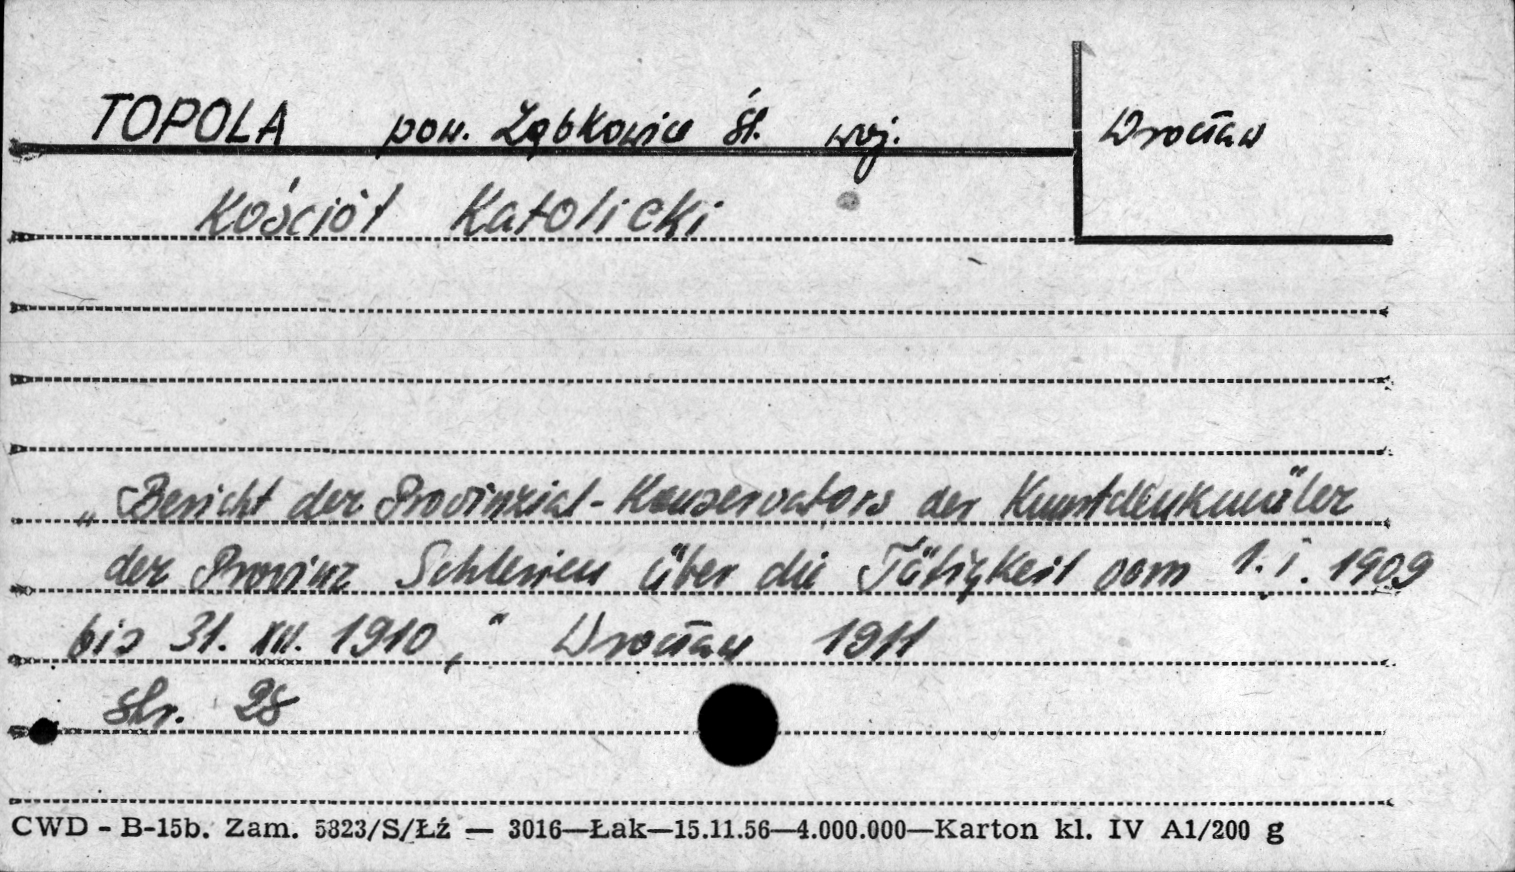 TOPOLA pow. Ząbkowice Śl. woj. Wrocław
Kościół Katolicki
„Bericht des Provinzial-Konservators der Kunstdenkmäler
der Provinz Schlesien über die Tätigkeit vom 1.I.1909
bis 31.XII.1910," Wrocław 1911
str. 28
CWD - B-15b. Zam. 5823/S/Łź — 3016—Łak—15.11.56—4.000.000—Karton kl. IV A1/200 g